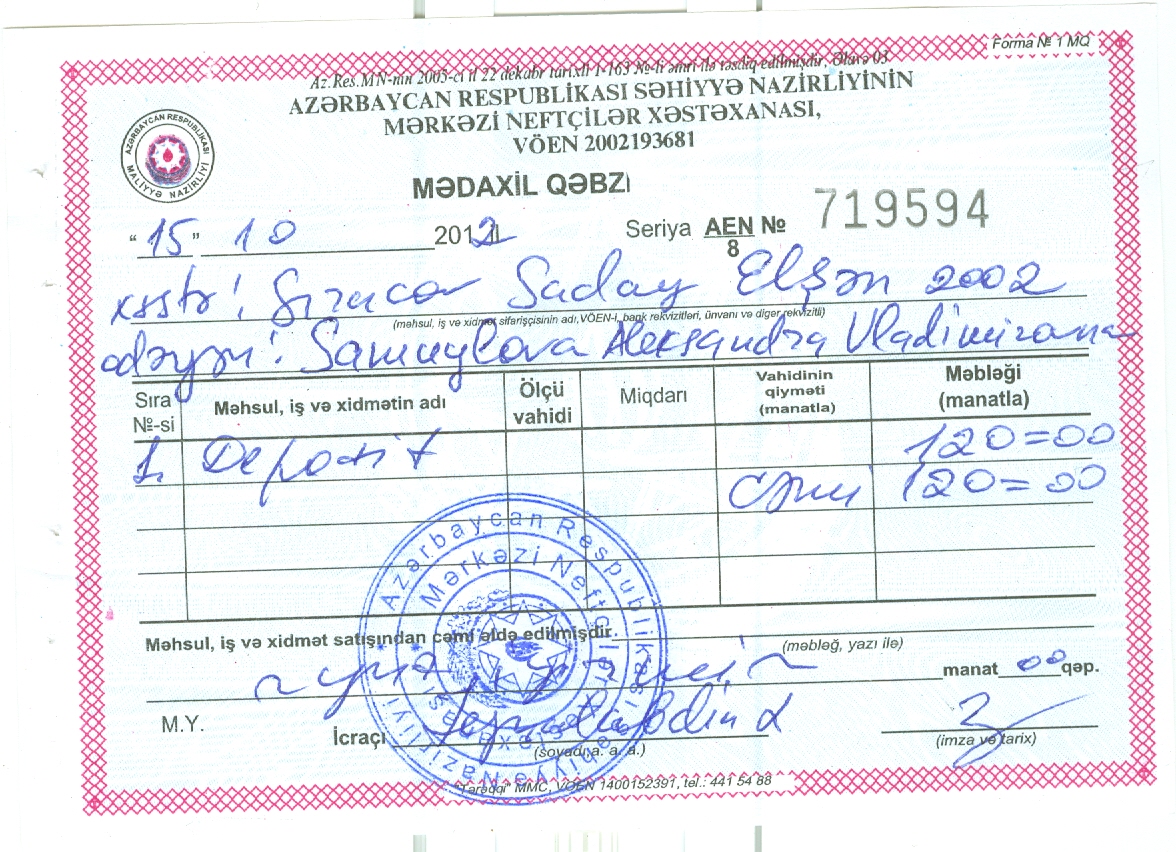 Forma № 1 MQ
Az.Res.MN-nin 2005-ci il 22 dekabr tarixli I-163 №-li əmri ilə təsdiq edilmişdir, Əlavə 03
AZƏRBAYCAN RESPUBLİKASI SƏHİYYƏ NAZİRLİYİNİN
MƏRKƏZİ NEFTÇİLƏR XƏSTƏXANASI,
VÖEN 2002193681
AZƏRBAYCAN RESPUBLİKASI MALİYYƏ NAZİRLİYİ
MƏDAXİL QƏBZİ
"15" 10 2012 Seriya AEN/8 № 719594
xəstə: Saday Elşən 2002
(məhsul, iş və xidmət sifarişçisinin adı, VÖEN-i, bank rekvizitləri, ünvanı və digər rekvizitli)
ödəyən: Samuylova Aleksandra Vladimirovna
Sıra №-si Məhsul, iş və xidmətin adı Ölçü vahidi Miqdarı Vahidinin qiyməti (manatla) Məbləği (manatla)
1. Depozit 120=00
Cəmi 120=00
Məhsul, iş və xidmət satışından cəmi əldə edilmişdir.
(məbləğ, yazı ilə)
manat 00 qəp.
M.Y. İcraçı
(soyadı, a. a.) (imza və tarix)
Azərbaycan Respublikası Səhiyyə Nazirliyi
Mərkəzi Neftçilər Xəstəxanası
"Tərəqqi" MMC, VÖEN 1400152391, tel.: 441 54 88